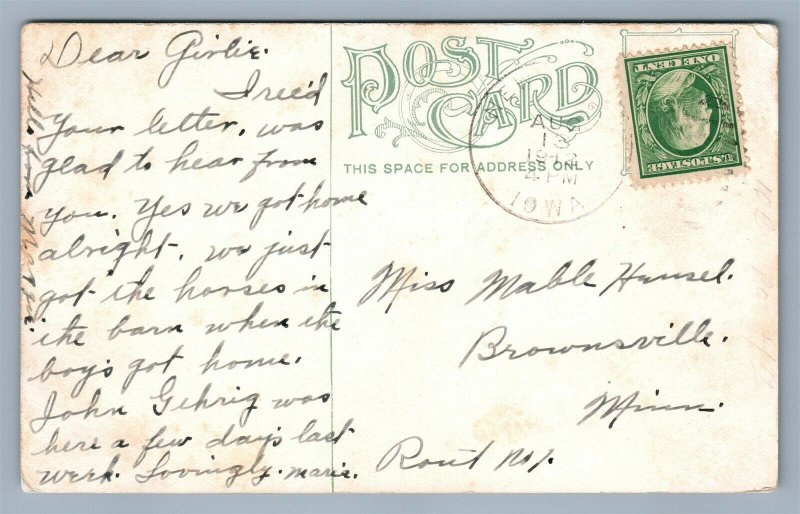 Dear Girlie.
I rec'd
Your letter, was
glad to hear from
you. Yes we got home
alright. we just
got the horses in
the barn when the
boys got home.
John Gehrig was
here a few days last
week. Lovingly. marie.
POST
CARD
THIS SPACE FOR ADDRESS ONLY
AUG
13
4 PM
IOWA
U.S. POSTAGE
ONE CENT
Miss Mable Hansel.
Brownsville.
Minn.
Rout No 1.